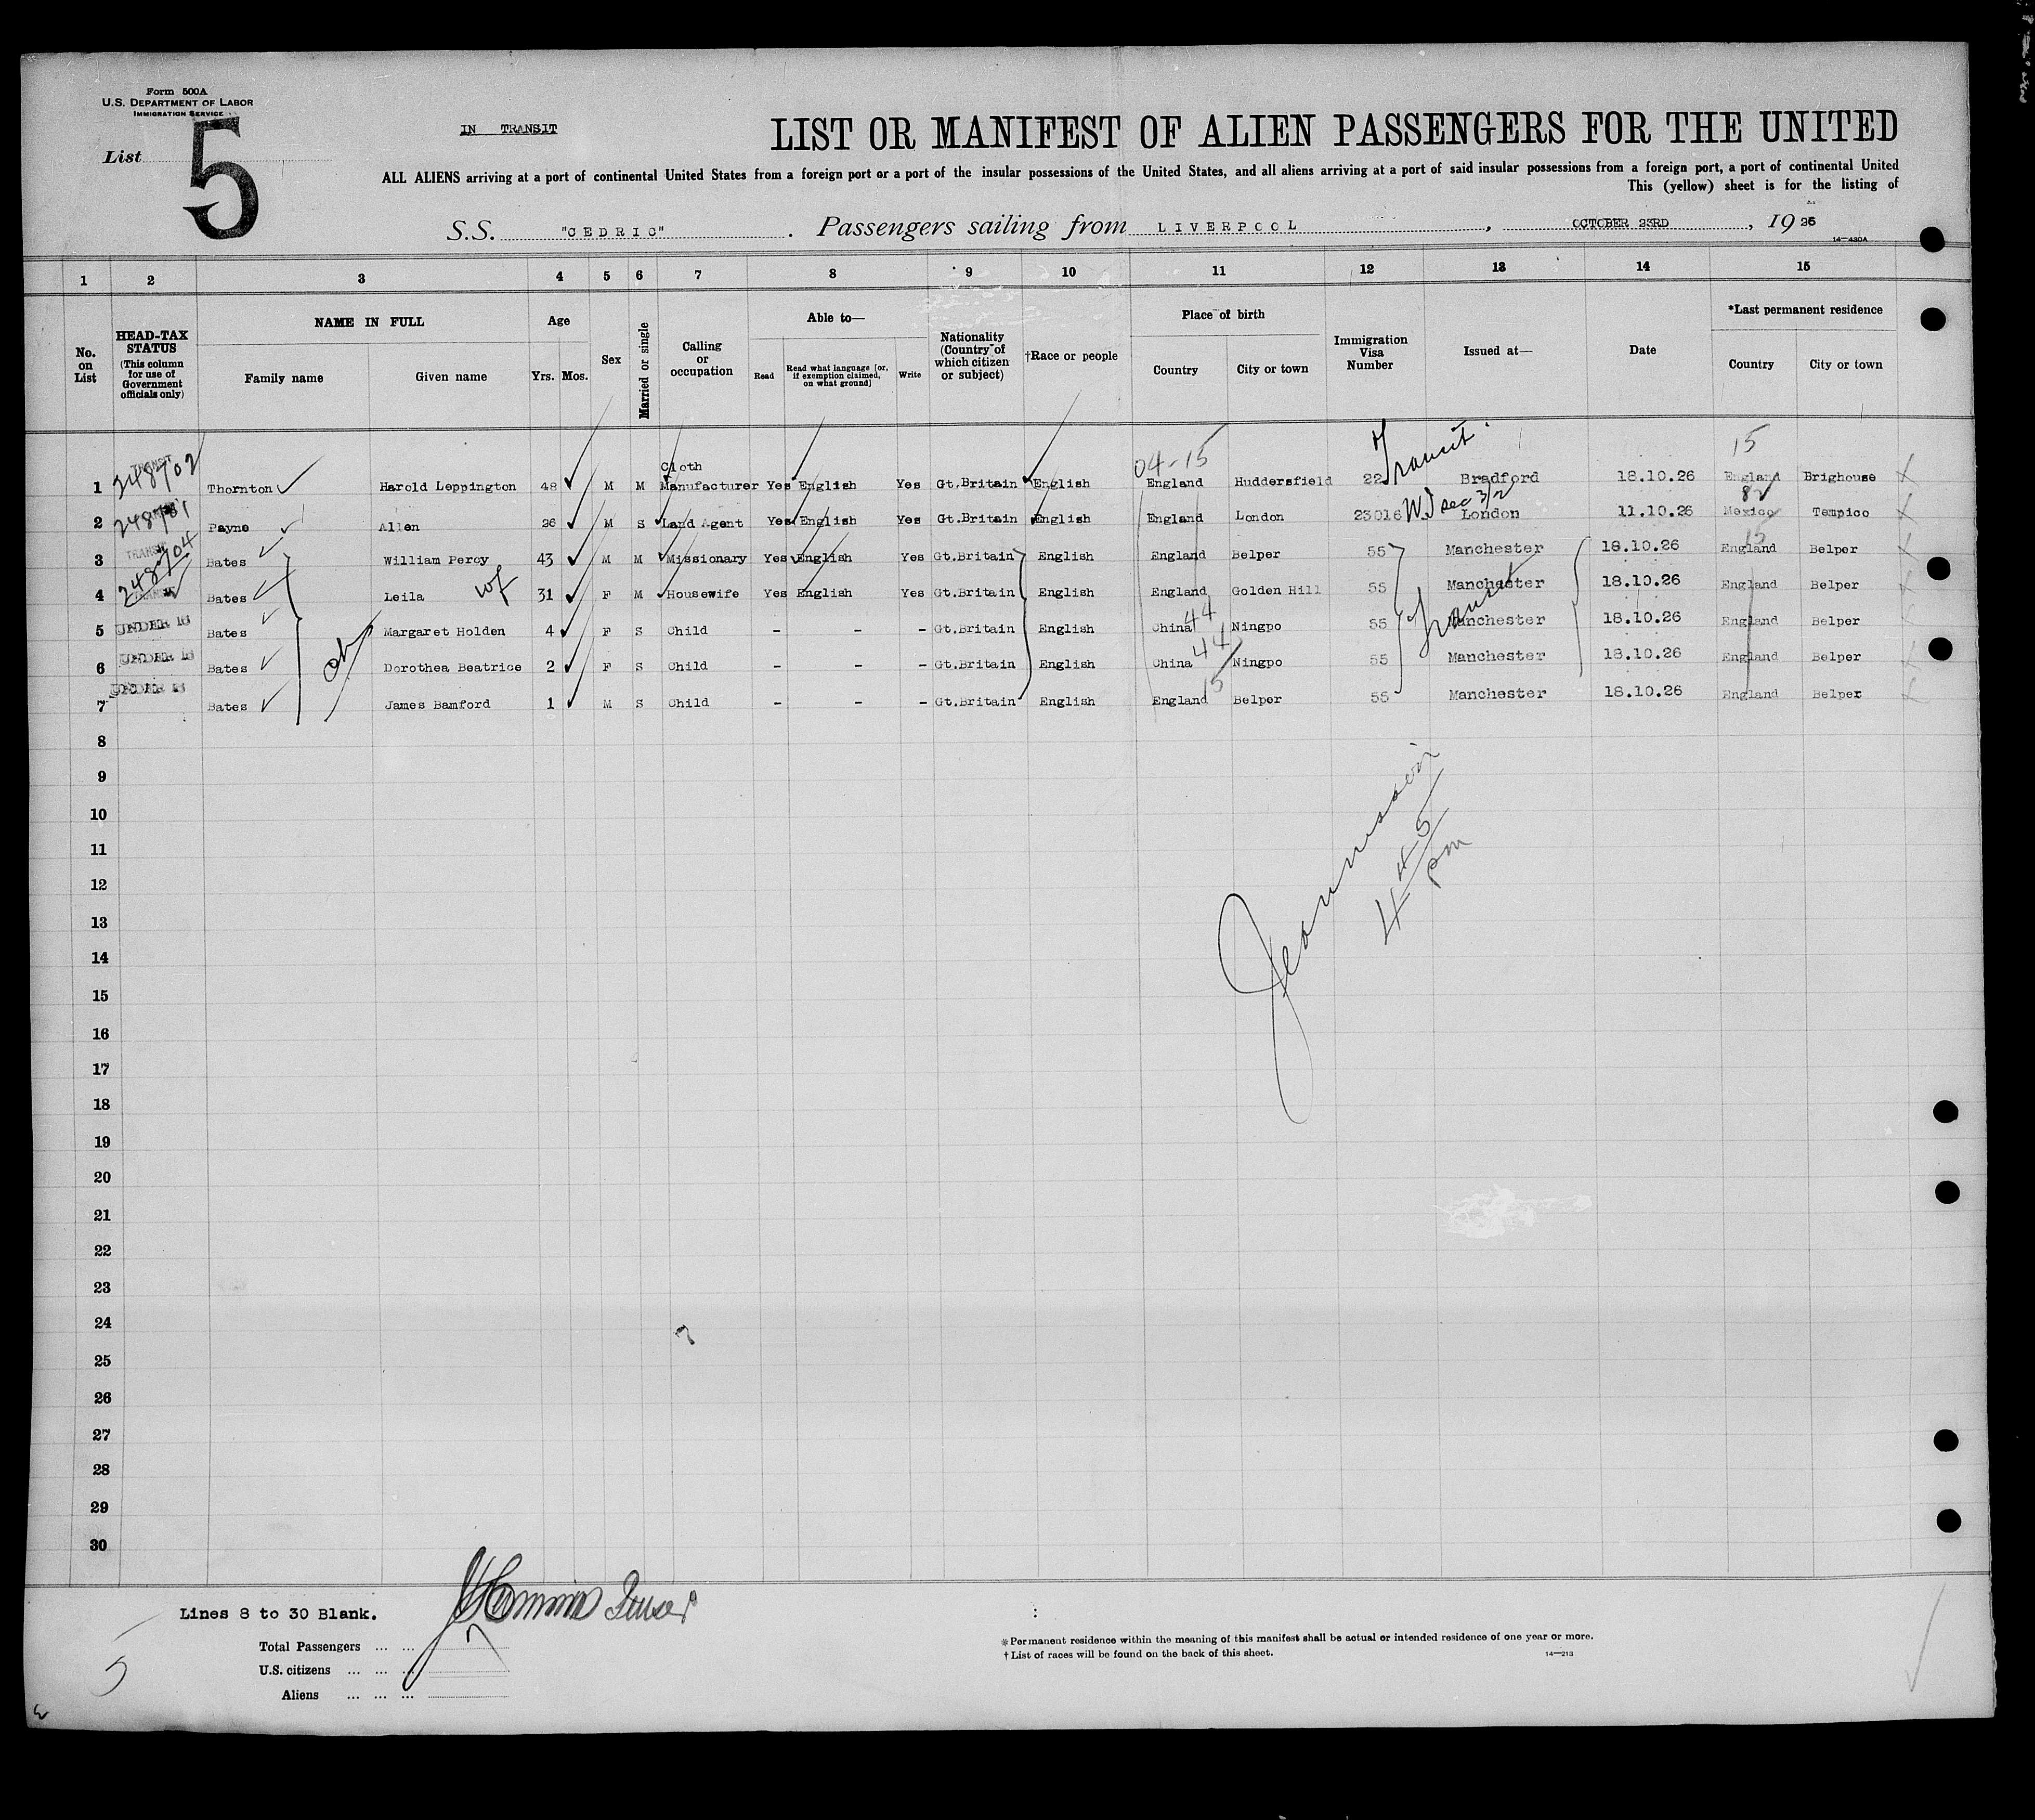 Form 500A
U.S. DEPARTMENT OF LABOR
IMMIGRATION SERVICE
List 5
IN TRANSIT
LIST OR MANIFEST OF ALIEN PASSENGERS FOR THE UNITED
ALL ALIENS arriving at a port of continental United States from a foreign port or a port of the insular possessions of the United States, and all aliens arriving at a port of said insular possessions from a foreign port, a port of continental United
This (yellow) sheet is for the listing of
S.S. "CEDRIC". Passengers sailing from LIVERPOOL, OCTOBER 23RD, 1926
14—430A
1 2 3 4 5 6 7 8 9 10 11 12 13 14 15
No. on List
HEAD-TAX STATUS (This column for use of Government officials only)
NAME IN FULL
Family name Given name
Age
Yrs. Mos.
Sex
Married or single
Calling or occupation
Able to—
Read Read what language [or, if exemption claimed, on what ground] Write
Nationality (Country of which citizen or subject)
†Race or people
Place of birth
Country City or town
Immigration Visa Number
Issued at—
Date
*Last permanent residence
Country City or town
04-15 Transit 15
1 248702 TRANSIT Thornton Harold Leppington 48 M M Cloth Manufacturer Yes English Yes Gt.Britain English England Huddersfield 22 Bradford 18.10.26 England Brighouse
82
2 248701 Payne Allen 26 M S Land Agent Yes English Yes Gt.Britain English England London 23016 sec 3/2 London 11.10.26 Mexico Tampico
15
3 TRANSIT Bates William Percy 43 M M Missionary Yes English Yes Gt.Britain English England Belper 55 Manchester 18.10.26 England Belper
4 248704 TRANSIT Bates Leila wf 31 F M Housewife Yes English Yes Gt.Britain English England Golden Hill 55 Transit Manchester 18.10.26 England Belper
5 UNDER 16 Bates ch Margaret Holden 4 F S Child - - - Gt.Britain English China 44 Ningpo 55 Manchester 18.10.26 England Belper
6 UNDER 16 Bates Dorothea Beatrice 2 F S Child - - - Gt.Britain English China 44 Ningpo 55 Manchester 18.10.26 England Belper
7 UNDER 16 Bates James Bamford 1 M S Child - - - Gt.Britain English England 15 Belper 55 Manchester 18.10.26 England Belper
8
9
10
11
12
13
14
15
16
17
18
19
20
21
22
23
24
25
26
27
28
29
30
4 45 pm
Lines 8 to 30 Blank.
Total Passengers ... ... 7
U.S. citizens ... ... ...
Aliens ... ... ...
5
* Permanent residence within the meaning of this manifest shall be actual or intended residence of one year or more.
† List of races will be found on the back of this sheet.
14—213